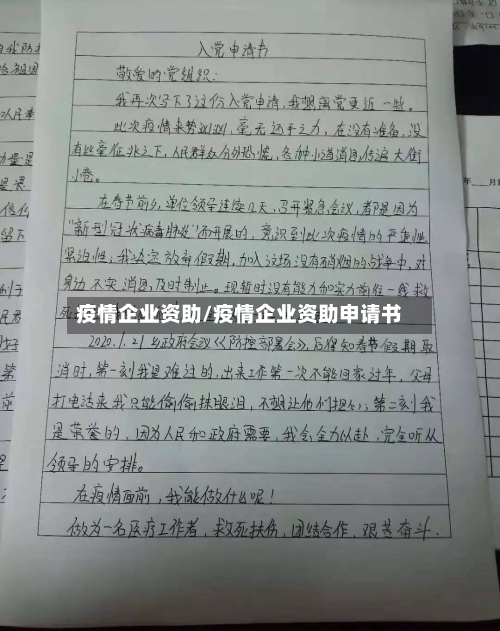 入党申请书
敬爱的党组织:
我再次写下了这份入党申请,我想离党更近一些。
此次疫情来势汹汹,毫无还手之力,在没有准备,没
有此毫征兆之下,人民群众分外恐慌,各种小道消息传遍大街
小巷。
在春节前夕,单位领导连续几天,召开紧急会议,都是因为
"新型冠状病毒肺炎"而开展的,意识到此次疫情的严重性
紧迫性,我决定放弃假期,加入这场没有硝烟的战争中,对
身边不实消息及时制止。现暂时没有能力和实力前往一线救
死
疫情企业资助/疫情企业资助申请书
2020.1.21乡政府会议《防控部署会》,后得知春节假期取
消时,第一刻我是难过的,出来工作第一次不能回家过年,父母
打电话来我只能偷偷抹眼泪,不想让他们担心;第二刻我
是荣誉的,因为人民和政府需要,我会全力以赴,完全听从
领导的安排。
在疫情面前,我能做什么呢!
做为一名医疗工作者,救死扶伤,团结合作,艰苦奋斗.